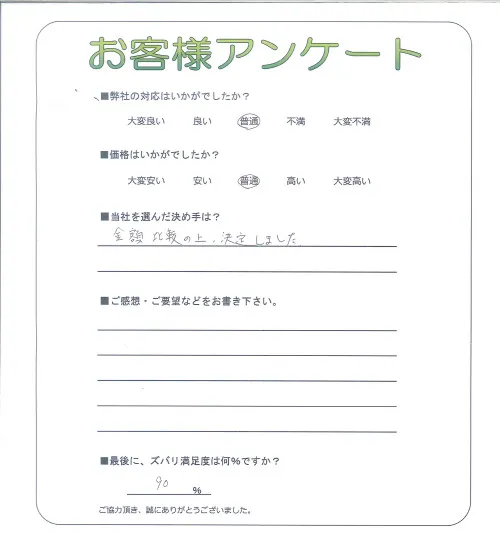 お客様アンケート
■弊社の対応はいかがでしたか？
大変良い 良い 普通 不満 大変不満
■価格はいかがでしたか？
大変安い 安い 普通 高い 大変高い
■当社を選んだ決め手は？
金額比較の上、決定しました
■ご感想・ご要望などをお書き下さい。
■最後に、ズバリ満足度は何%ですか？
90 %
ご協力頂き、誠にありがとうございました。